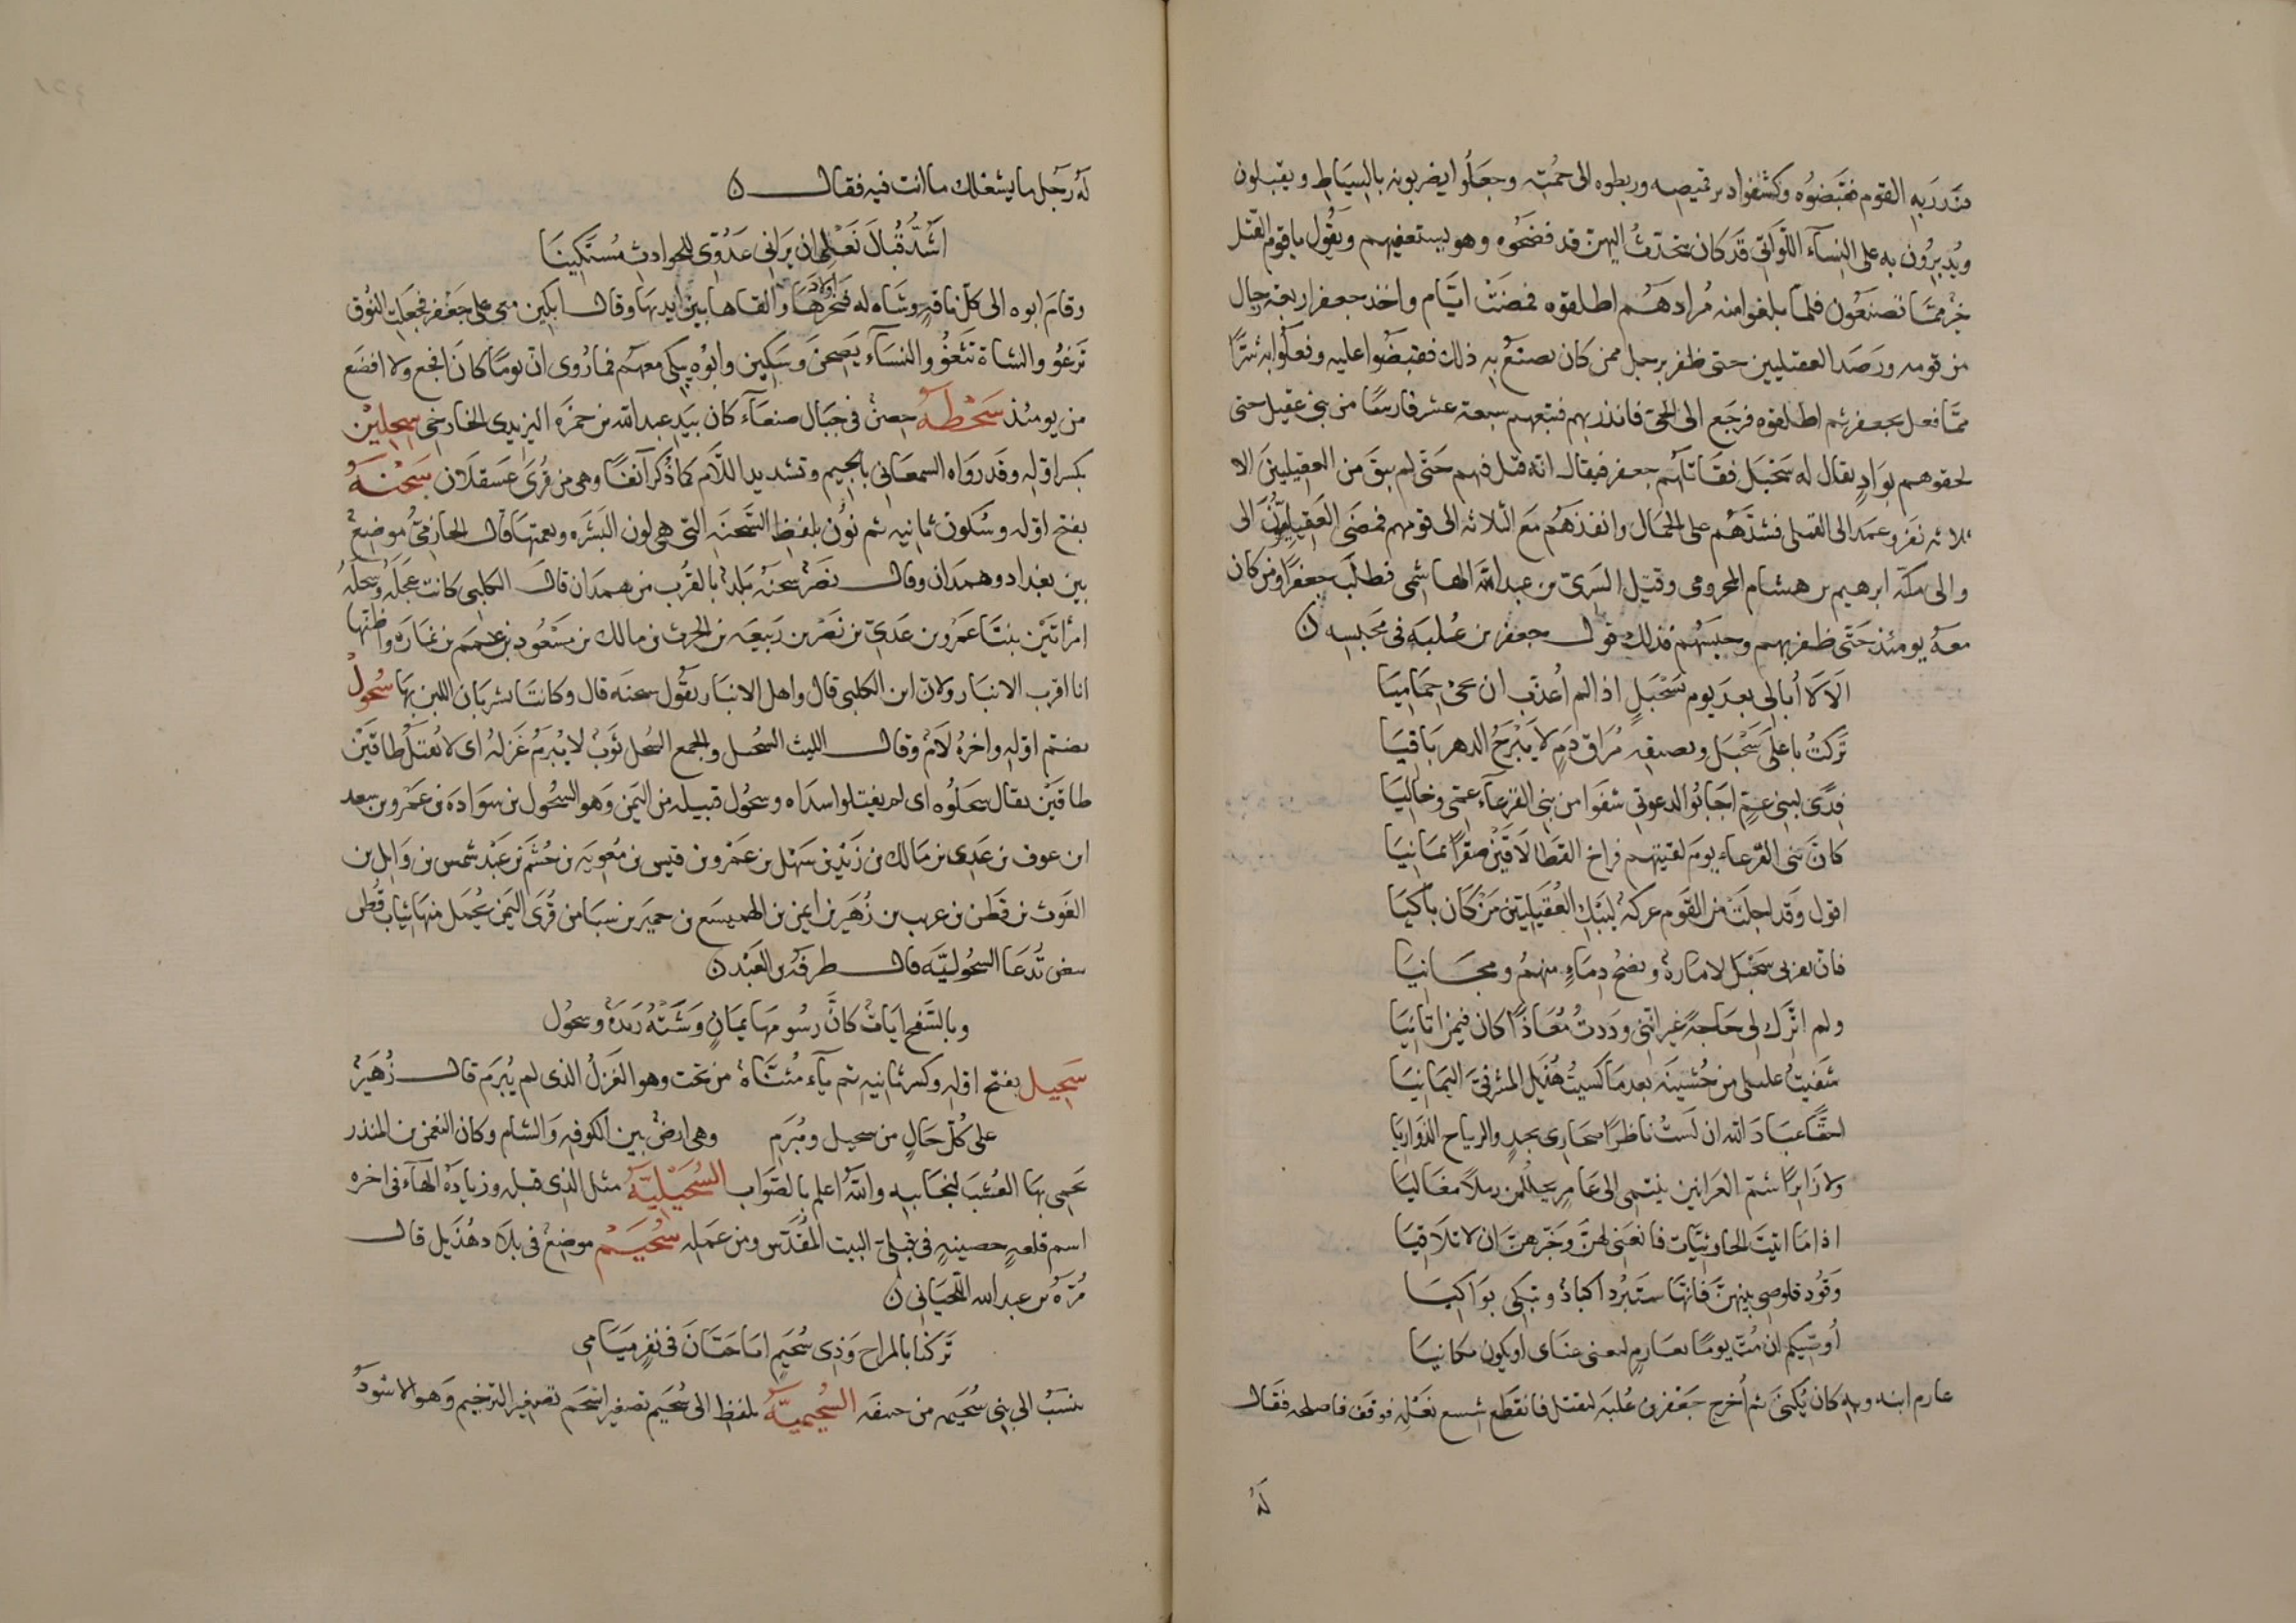 فنذر به القوم فقبضوه وكشفوا دبر قميصه وربطوه الى جمته وجعلوا يضربونه بالسياط ويقبلون
ويُدبرُون به على النسآء اللّواتى قد كان يتحدّث اليهنّ قد فضحوه وهو يستعفيهم ويقُول ياقوم القتل
خير ممّا تصنعُون فلمّا بلغوا منه مُرادهُم اطلقوه فمضت ايّام واخذ جعفر اربعة رجال
من قومه ورصَد العقيليين حتى ظفر برجل ممن كان يصنعُ به ذلك فقبضُوا عليه وفعلوا به شرًّا
ممّا فعل بجعفر ثم اطلقوه فرجَع الى الحىّ فانذرهم فتبعهم سبعة عشر فارسًا من بنى عقيل حتى
لحقوهم بوَادٍ يقال له سَحْبَل فقَاتلهُم جعفر فيقال انّه قتل فيهم حتى لم يبقَ من العقيليين الا
ثلاثه نفَر وعمد الى القتلى فشدّهُم على الجمال وانفذهُم مَع الثلاثه الى قومهم فمضَى العقيليّونَ الى
والى مكة ابرهيم بن هشام المخزومى وقيل السَرىّ بن عبد الله الهاشمى فطلب جعفرًا ومن كان
معهُ يومئذ حَتّى ظفر بهم وحبسَهُم فذلك قول جعفر بن عُلبَه فى محبسه ن
اَلَا لا اُبالى بعدَ يوم بسَحْبَلٍ اذا لم اُعذّب ان يجئ حِمَاميَا
تَركتُ باعلَى سَحْبَل ومضيقه مُرَاق دَمٍ لا يَبْرَحُ الدهر بَاقيَا
فِدًى لبنى عمٍّ اجَابُوا لدعوتى شفَوا من بنى القرعآء عمّى وخاليَا
كانّ بنى القرعآء يوم لقيتهم فراخ القطا لاقَيْنَ صقرًا يمَانيَا
اقول وقد اجلتْ من القوم عركه ليَبْكِ العُقيليّين مَنْ كَان باكيَا
فانّ بقربى سَحْبَل لامَارة ونضحُ دِمَاءٍ منهمُ ومحَابيَا
ولم اترك لى حَاجةً غير انّنى وددتُ مُعَاذًا كان فيمن اتانيَا
شفيتُ غليلى من خُشينَه بعد مَا كسيتُ هُذيل المشرفىَّ اليمَانيَا
احقًّا عبَادَ الله ان لَستُ ناظرًا صحارى نجدٍ والرياح الذوَاريَا
ولا زَايرًا شمّ العرَانين ينتمى الى عَامرٍ يحللن رملاً معَاليَا
اذا مَا اتيتَ الحارثيّات فانعَنى لهنّ وَخبّرهنّ ان لا تلَاقيَا
وَقَوِّد قلوصى بينهنّ فانّهَا ستبرُد اكبادًا وتبكى بوَاكيَا
اُوصّيكم ان متّ يومًا بعَارمٍ ليغنى غنَاى او يكون مكانيَا
عارم ابنه وبهِ كان يُكنَى ثم اُخرج جَعْفر بن عُلبَه ليقتل فانقطَع شِسع نَعْلِه فوقف فاصلحه فقال
لهُ
لهُ رجُل ما يشغلك ما انت فيه فقال ن
اشُدُّ قُبالَ نَعْلى ان يَرَانى عَدُوّى للحوادث مُستكينَا
وقامَ ابوه الى كل ناقةٍ وشاه له فنحَرَ اولادهَا والقاها بين ايديهَا وقال ابكين معى على جَعْفر فجعَلت النُوق
تَرغوُ والشاة تَثغُو والنسآء يَصِحْنَ وَيبكين وابُوه يبكى معهُم فما رُوى انّ يومًا كانَ افجع ولا افضَع
من يومئذ سَحْطَهُ حِصن فى جبَال صنعآء كان بيَدِ عبد الله بن حمزه الزيدى الخارجى سِحِلّين
بكسر اوّله وقدروَاه السمعَانى بالجيم وتشديد اللام كما ذُكرآنفًا وهى من قُرَى عَسقلان سَحْنَهُ
بفتح اوّله وسُكون ثانيه ثم نوُن بلفظ السَّحنَه التى هى لون البَشَره ونعمتها قال الحازمىّ موضِعْ
بين بغداد وهمَدان وقال نصَرْ سحنَهْ بَلدْ بالقُرب من همدَان قال الكلبى كانت عجَله وسحلهُ
امرأتَيْن بنتَا عَمرُو بن عَدىّ بن نصْر بن رَبيعَه بن الحرث بن مالك بن مسَعُود بن عمَمَ بن نماره واظنّها
انا اقرب الانبار ولانّ ابن الكلبى قال واهل الانبار يقُول سحنَه قال وكانتا يشربَان اللبن بهَا سُحُول
بضمّ اوّله واخرهُ لَام وقال الليث السُحل والجمع السُحل ثوبْ لا يُبْرَمُ غَزلهُ اى لا يُفتَلُ طاقَيْن
طاقَيْن يقال سحَلوُه اى لم يفتلوا سداه وسحُول قبيله من اليمن وَهو السُحُول بن سوادَه بن عَمرو بن سعد
ابن عوف بن عَدى بن مَالك بن زَيْد بن سَهْل بن عَمْرو بن قيس بن مُعويه بن جُشَم بن عَبْد شمس بن وَايل بن
الغوث بن قَطَن بن عريب بن زُهَير بن ايمن بن الهميسَع بن حمير بن سبَا من قُرَى اليمن يُحمَل منهَا ثياب قُطن
بيض تُدعَا السحُوليّه قال طرفَه بن العَبْد ن
وبالسَّفح ايَاتْ كانَّ رسُومهَا يمَانٍ وَشَتْهُ رَيدَة وسحُول
سَحيل بفتح اوّله وكسر ثانيه ثم يآء مُثنّاة من تحت وهو الغَزلُ الذى لم يُبرَم قال زُهَيرْ
على كُلّ حَالٍ من سحيل ومُبرَمِ وهى ارضْ بين الكوفه وَالشام وكان النعمن بن المنذر
يَحمى بهَا العُشبَ لنجَايبه والله اعلم بالصَوَاب السُحَيْليّهُ مثل الذى قبله وزيادَة الهآء فى اخره
اسم قلعةٍ حصينةٍ فى قبلىّ البيت المقَدّس ومن عَمله سُحَيْم موضِعْ فى بلاد هُذيل قال
مُرّة بن عبد الله اللّحيَانى ن
تَركنَا بالمراح وَذى سُحَيمٍ ابَا حَيّانَ فى نفرٍ ميَامى
السُحيميّهُ بلفظ الى سُحَيم تصغيراَسْحَم تصغيرالترخيم وَهو الاسْودُ
ينسَبُ الى بنى سُحَيم من حنيفه